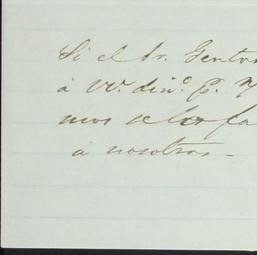 Si el Sr. Gentor
á VV. din.º p.
mos se lo fa
á nosotros_